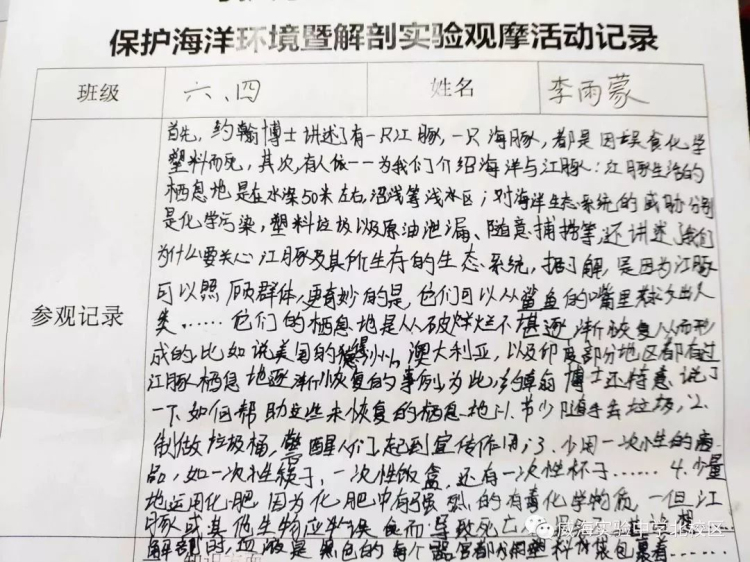 保护海洋环境暨解剖实验观摩活动记录
班级 六、四 姓名 李雨蒙
参观记录
首先，约翰博士讲述了有一只江豚，一只海豚，都是因误食化学
塑料而死，其次，有人依一一为我们介绍海洋与江豚：江豚生活的
栖息地是在水深50米左右，沼浅等浅水区；对海洋生态系统的威胁分别
是化学污染，塑料垃圾以及原油泄漏、随意捕捞等，还讲述了我们
为什么要关心江豚及其所生存的生态系统，据了解，是因为江豚
可以照顾群体，更奇妙的是，他们可以从鲨鱼的嘴里救出人
类……他们的栖息地是从破烂不堪逐渐恢复从而形
成的，比如说美国的 州，澳大利亚，以及印度部分地区都有过
江豚栖息地逐渐恢复的事例，为此，约翰博士还特意说了
一下如何帮助这些未恢复的栖息地：1.节少随手丢垃圾，2.
制做垃圾桶，警醒人们，起到宣传作用；3.少用一次性的商
品，如一次性筷子，一次性饭盒，还有一次性杯子……4.少量
地运用化肥，因为化肥中有强烈的有毒化学物质，一但江
豚或其他生物 误食而导致死亡
解剖时，血液是黑色的，每个器官都 塑料 包裹着……
威海实验中学北校区